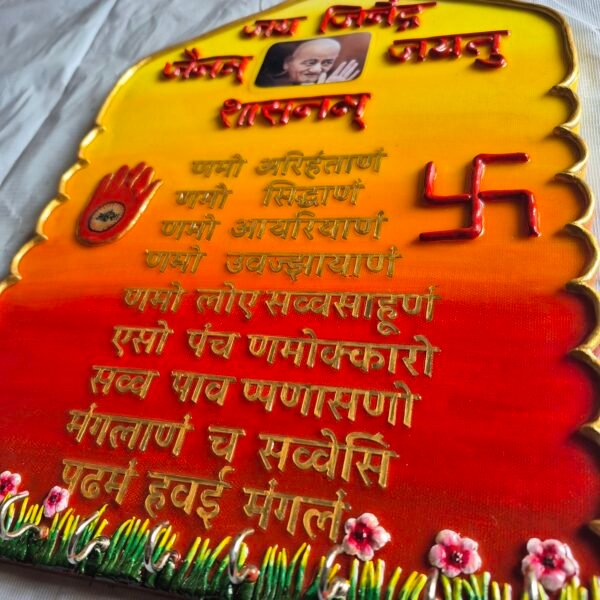 जय जिनेन्द्र
जैनम् जयतु
शासनम्
णमो अरिहंताणं
णमो सिद्धाणं
णमो आयरियाणं
णमो उवज्झायाणं
णमो लोए सव्वसाहूणं
एसो पंच णमोक्कारो
सव्व पाव प्पणासणो
मंगलाणं च सव्वेसिं
पढमं हवई मंगलं